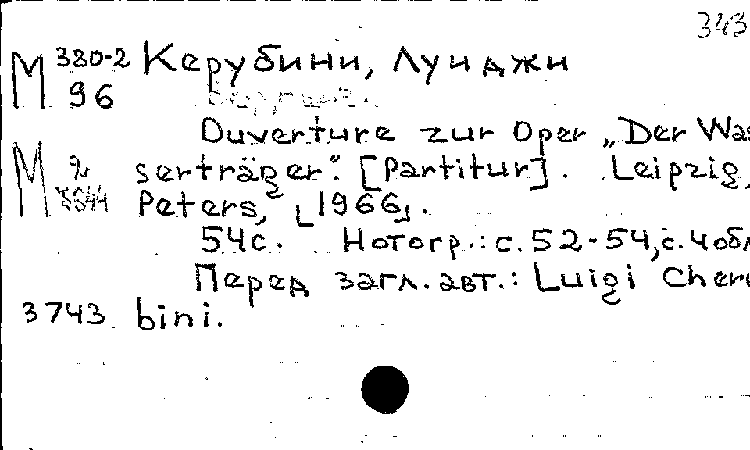 343
М 380-2 Керубини, Луиджи
96
Ouverture zur Oper „Der Was
М serträger“. [Partitur]. Leipzig,
Peters, [1966].
54с. Нотогр.: с. 52-54, с. 4 обл
Перед загл. авт.: Luigi Cheru
3743 bini.